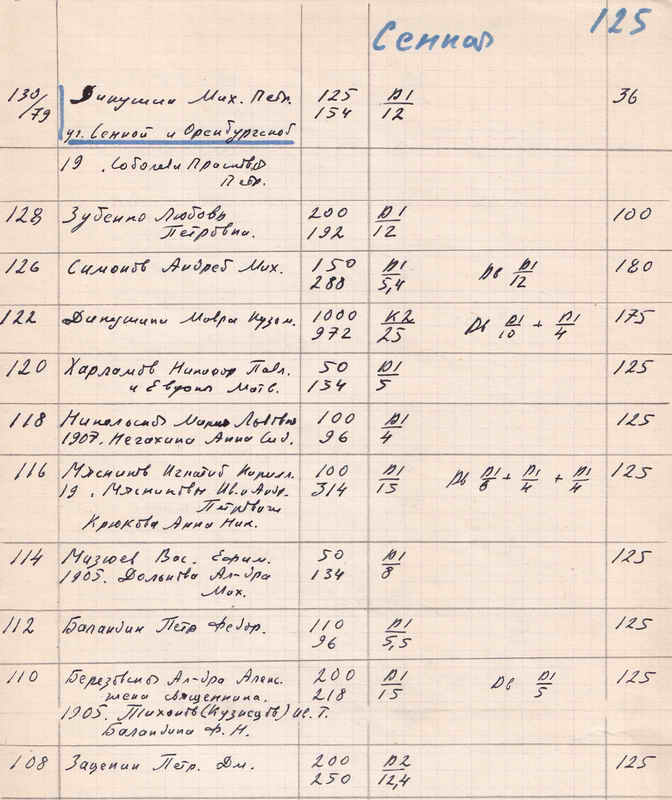 Сенная 125
130/79 Дикушин Мих. Петр. 125 Д1 36
уг. Сенной и Оренбургской 154 12
19 . Соболев и Прасковья
Петр.
128 Зубенко Любовь 200 Д1 100
Петровна. 192 12
126 Симонов Андрей Мих. 150 Д1 Дв Д1 180
288 5,4 12
122 Дикушина Мавра Кузьм. 1000 К2 Дв Д1 + Д1 175
972 25 10 4
120 Харламов Никифор Павл. 50 Д1 125
и Евдокия Матв. 134 5
118 Никольский Мария Львовна 100 Д1 125
1907. Негахина Анна Сид. 96 4
116 Мясников Игнатий Кирилл. 100 Д1 Дв Д1 + Д1 + Д1 125
19 . Мясниковы Ив. и Андр. 314 15 8 4 4
Петровичи
Крюкова Анна Ник.
114 Мазюев Вас. Ефим. 50 Д1 125
1905. Ал-дра 134 8
Мих.
112 Баландин Петр Федор. 110 Д1 125
96 5,5
110 Березовская Ал-дра Алекс. 200 Д1 Дв Д1 125
жена священника. 218 15 5
1905. Тихонов (Кузнецов) Ис. Т.
Баландина Ф. Н.
108 Зацепин Петр. Дм. 200 Д2 125
250 12,4